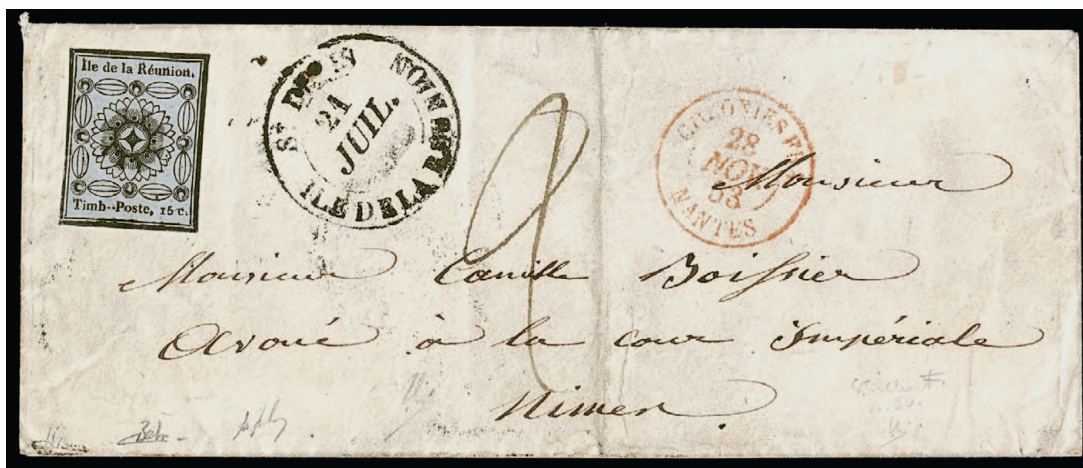 Ile de la Réunion.
Timb--Poste, 15 c.
St DENIS RÉUNION
21
JUIL.
ILE DE LA
2
COLONIES F
28
NOV
53
NANTES
Monsieur
Monsieur Camille Boissier
Avoué à la cour Impériale
Nimes